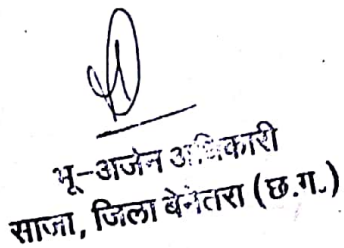 भू-अर्जन अधिकारी
साजा, जिला बेमेतरा (छ.ग.)